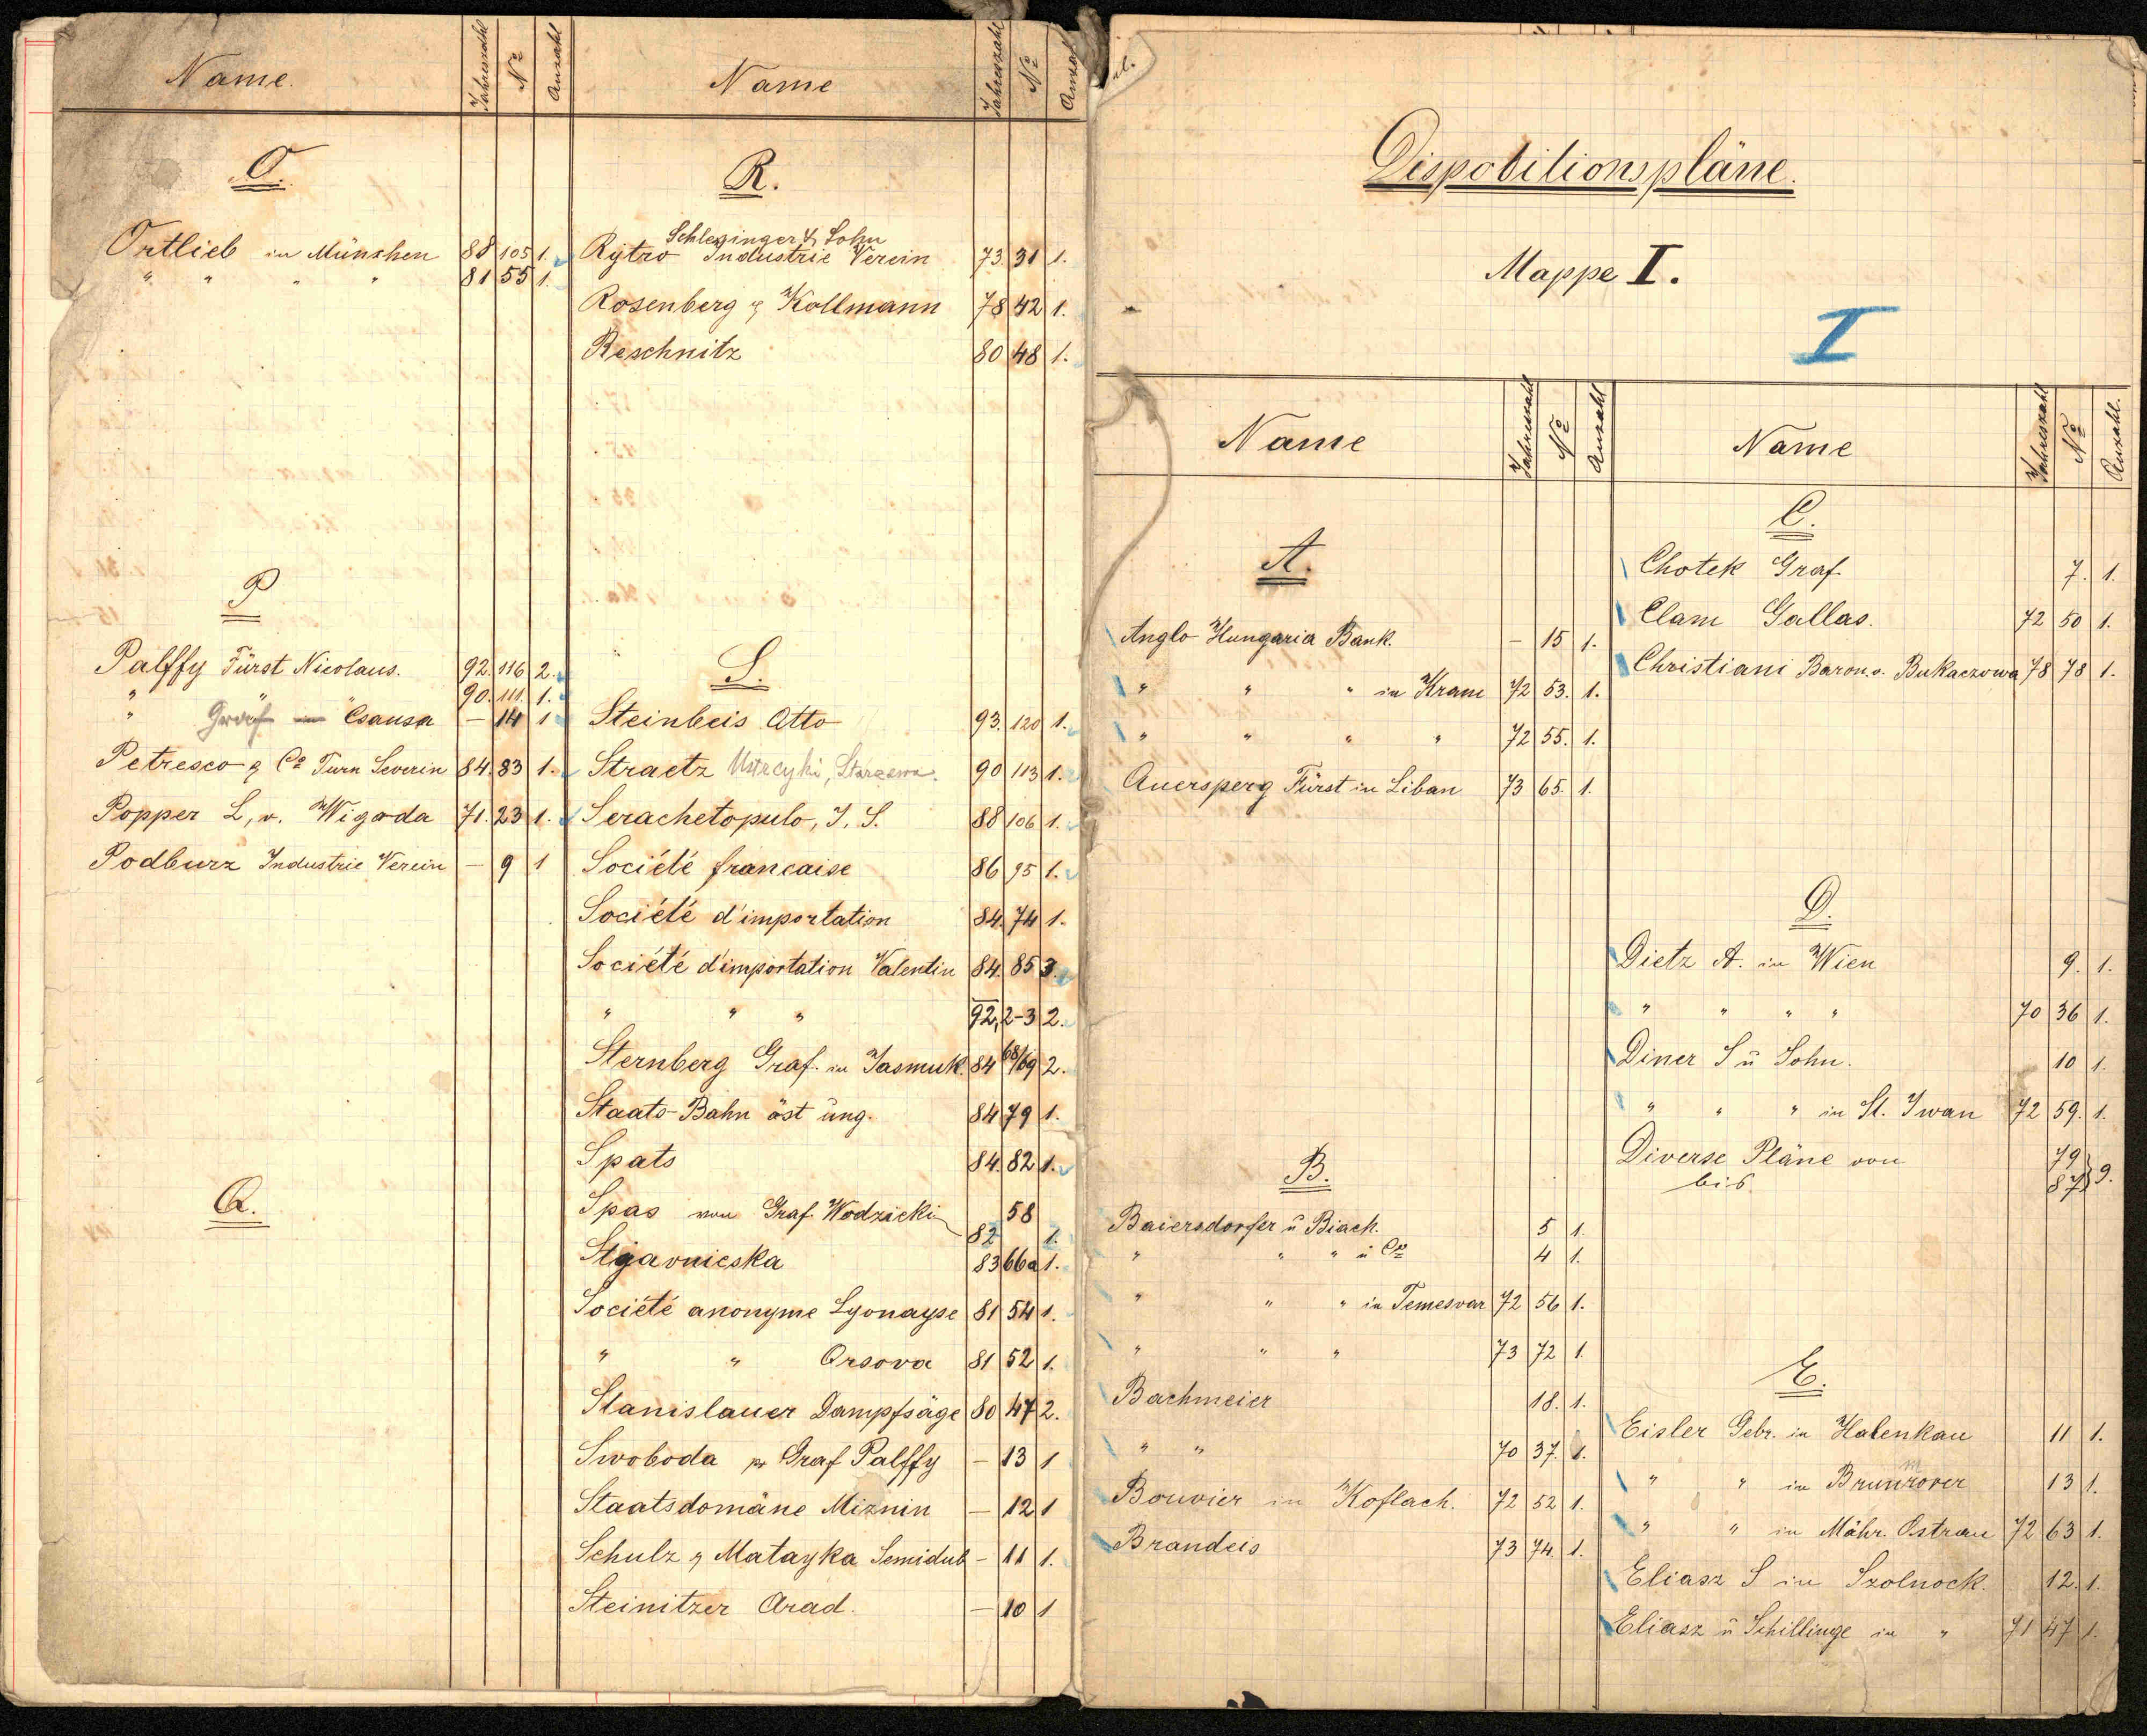 Name. Jahreszahl Nº Anzahl
O.
Ortlieb in Münshen 88 105 1.
" " " " 81 55 1.
P
Palffy Fürst Nicolaus. 92. 116 2.
" 90. 111. 1.
" Graf in Csausa — 14 1
Petresco & Cº Turn Severin 84. 83 1.
Popper L, v. Wigoda 71. 23 1.
Podburz Industrie Verein — 9 1
Q.
Name Jahreszahl Nº Anzahl
R.
Schlesinger & Sohn
Rytro Industrie Verein 73. 31 1.
Rosenberg & Kollmann 78 42 1.
Reschnitz 80 48 1.
S.
Steinbeis Otto 93. 120 1.
Straetz 90 113 1.
Serachetopulo, J. S. 88 106 1.
Société francaise 86 95 1.
Société d'importation 84. 74 1.
Société d'importation Valentin 84. 85 3.
" " " 92, 2-3 2.
Sternberg Graf. in Jasmuk. 84 68/69 2.
Staats-Bahn öst ung. 84 79 1.
Spats 84. 82 1.
Spas von Graf Wodzicki 58
82 1.
Stjavnicska 83 66a 1.
Société anonyme Lyonayse 81 54 1.
" " Orsova 81 52 1.
Stanislauer Dampfsäge 80 47 2.
Swoboda pr Graf Palffy — 13 1
Staatsdomäne Miznin — 12 1
Schulz & Matayka Semidub — 11 1.
Steinitzer Arad. — 10 1
Dispositionspläne.
Mappe I.
I
Name Jahreszahl Nº Anzahl
A.
Anglo Hungaria Bank. — 15 1.
" " " in Kram 72 53. 1.
" " " " 72 55. 1.
Auersperg Fürst in Liban 73 65. 1.
B.
Baiersdorfer u Biach. 5 1.
" " " u Cº 4 1.
" " " in Temesvar 72 56 1.
" " " 73 72 1.
Bachmeier 18. 1.
" " 70 37. 1.
Bouvier in Koflach. 72 52 1.
Brandeis 73 74. 1.
Name Jahreszahl Nº Anzahl.
C.
Chotek Graf. 7. 1.
Clam Gallas. 72 50 1.
Christiani Baron v. Bukaczowa 78 78 1.
D.
Dietz A. in Wien 9. 1.
" " " " 70 36 1.
Diner S u Sohn. 10 1.
" " " in St. Iwan 72 59. 1.
Diverse Pläne von 79
bis 87 } 9.
E.
Eisler Gebr. in Halenkau 11 1.
" " in 13 1.
" " in Mähr. Ostrau 72 63 1.
Eliasz S in Szolnock. 12. 1.
Eliasz u Schillinge in " 71 47 1.